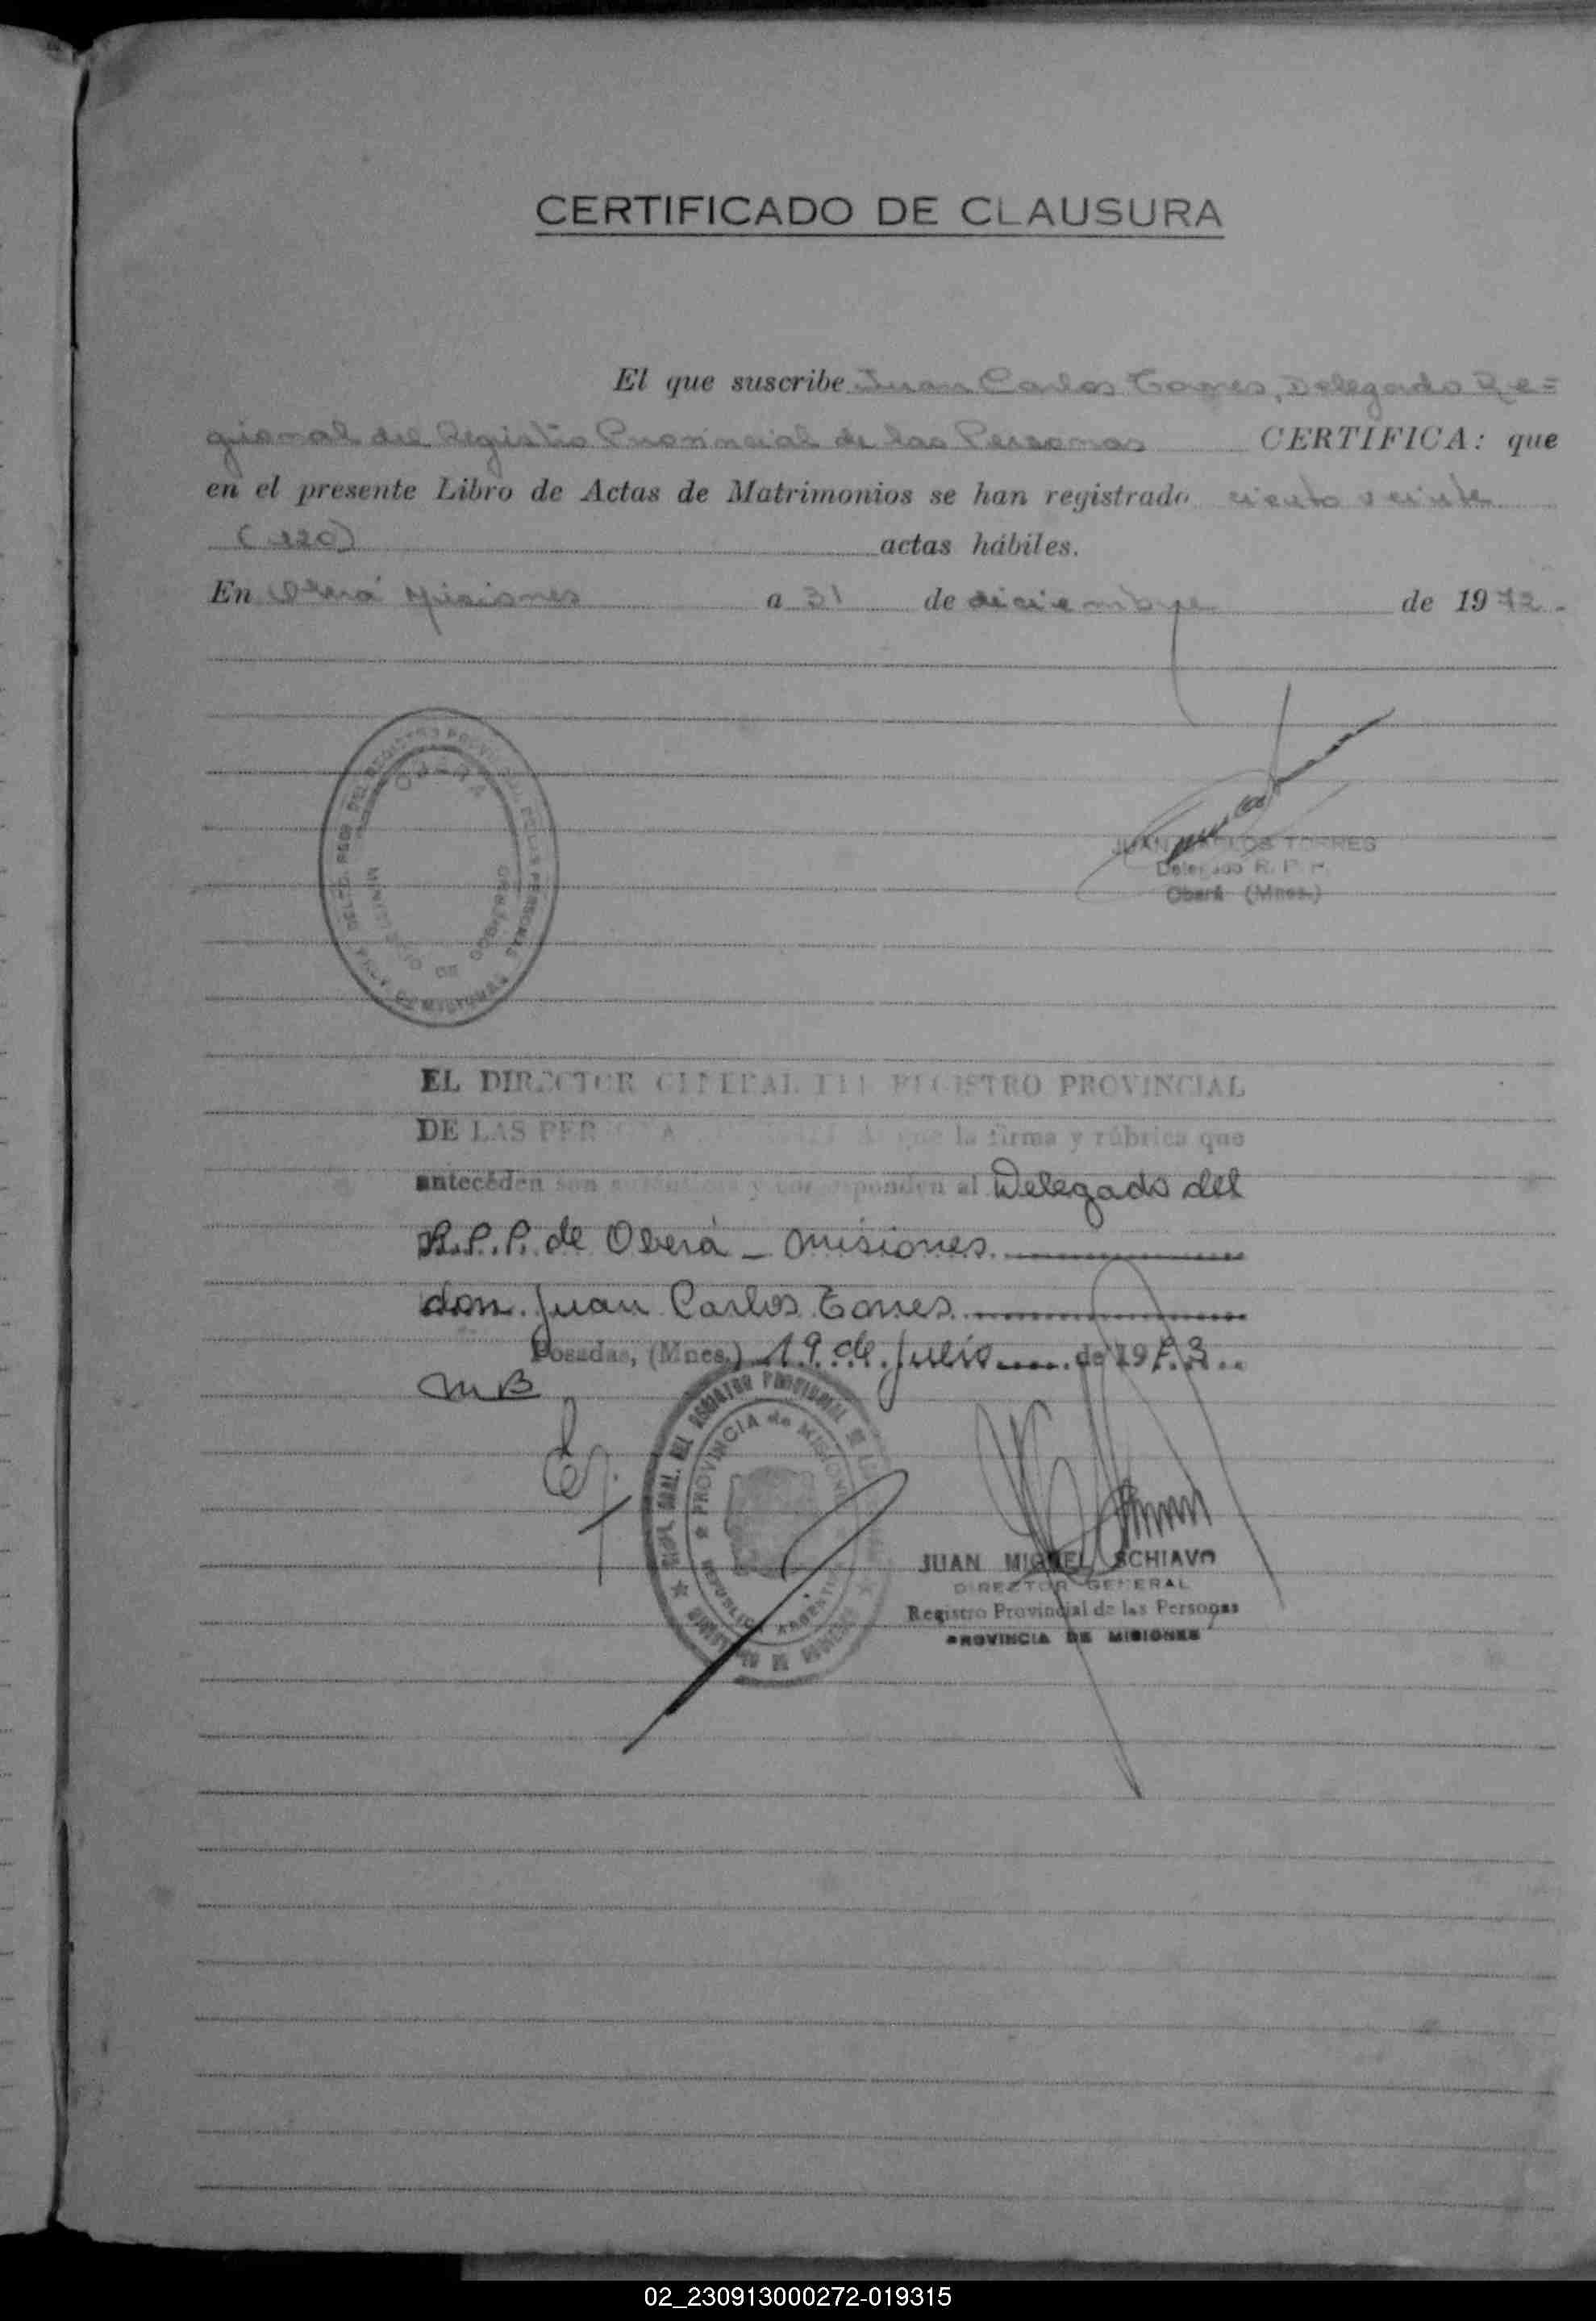 CERTIFICADO DE CLAUSURA
El que suscribe Juan Carlos Torres, Delegado Re=
gional del Registro Provincial de las Personas CERTIFICA: que
en el presente Libro de Actas de Matrimonios se han registrado ciento veinte
(120) actas hábiles.
En Oberá Misiones a 31 de diciembre de 1972.
OBERA
MINISTERIO DE GOBIERNO
JUAN CARLOS TORRES
Delegado R. P. P.
Oberá (Mnes.)
EL DIRECTOR GENERAL DEL REGISTRO PROVINCIAL
DE LAS PERSONAS que la firma y rúbrica que
anteceden son auténticas y corresponden al Delegado del
R.P.P. de Oberá - Misiones.
don Juan Carlos Torres
Posadas, (Mnes.) 19 de Julio de 1973
MB
PROVINCIA de MISIONES
REPUBLICA ARGENTINA
JUAN MIGUEL SCHIAVO
DIRECTOR GENERAL
Registro Provincial de las Personas
PROVINCIA DE MISIONES
02_230913000272-019315